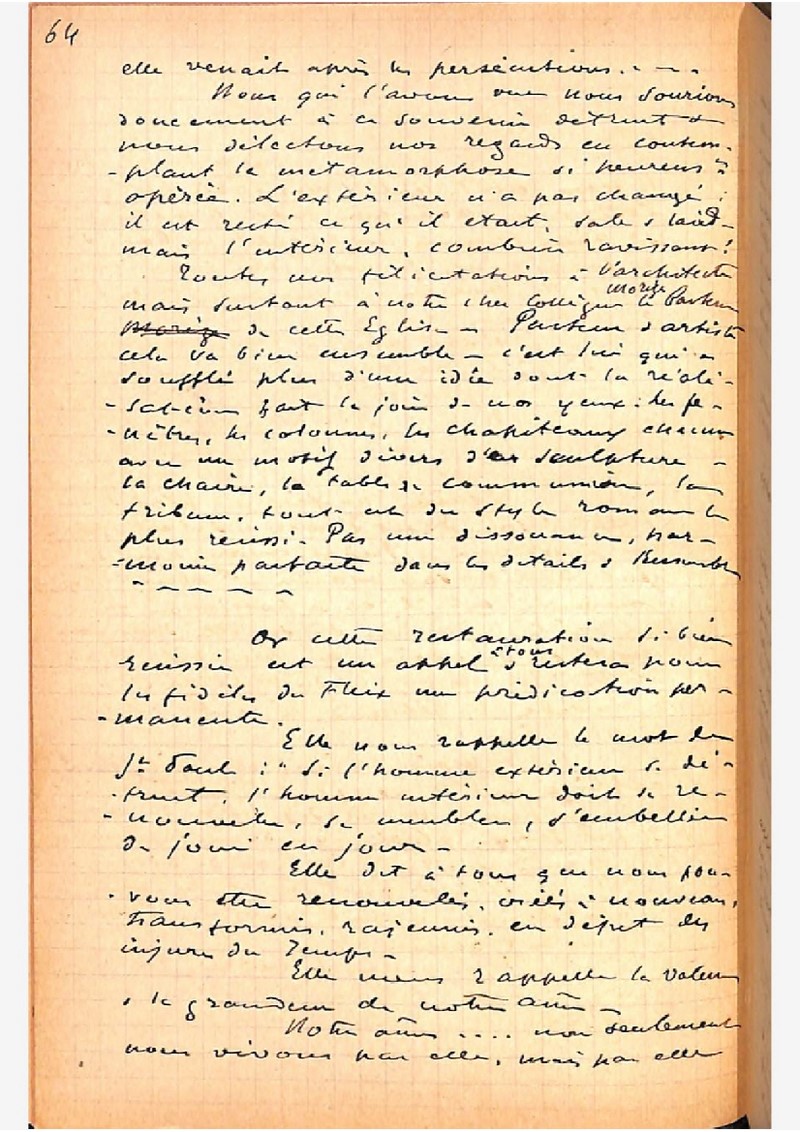 64
elle venait après les persécutions. . - -
Nous qui l'avons vue nous sourions
doucement à ce souvenir détruit &
nous délectons nos regards en contem-
-plant la métamorphose si heureus t
opérée. L'extérieur n'a pas changé ;
il est resté ce qu'il était, sale & laid -
mais l'intérieur, combien ravissant !
Toutes nos félicitations à l'architecte
mais surtout à notre cher collègue Morize le Pasteur
Morize de cette Eglise - Pasteur & artiste
cela va bien ensemble - c'est lui qui a
soufflé plus d'une idée dont la réali-
-sation fait la joie de nos yeux : les fe-
-nêtres, les colonnes, les chapiteaux chacun
avec un motif divers de sculpture -
la chaire, la table de communion, la
tribune, tout est du style roman le
plus réussi. Pas une dissonance, har-
-monie parfaite dans les détails & l'ensemble
- - - - - -
Or cette restauration si bien
réussie est un appel à tous & restera pour
les fidèles du Fleix une prédication per-
-manente.
Elle nous rappelle le mot de
St Paul : " Si l'homme extérieur se dé-
-truit, l'homme intérieur doit se re-
-nouveler, se meubler, s'embellir
de jour en jour -
Elle dit à tous que nous pou-
-vons être renouvelés, créés à nouveau,
transformés, rajeunis, en dépit des
injures du Temps -
Elle nous rappelle la valeur
& la grandeur de notre âme -
Notre âme .... non seulement
nous vivons par elle, mais par elle